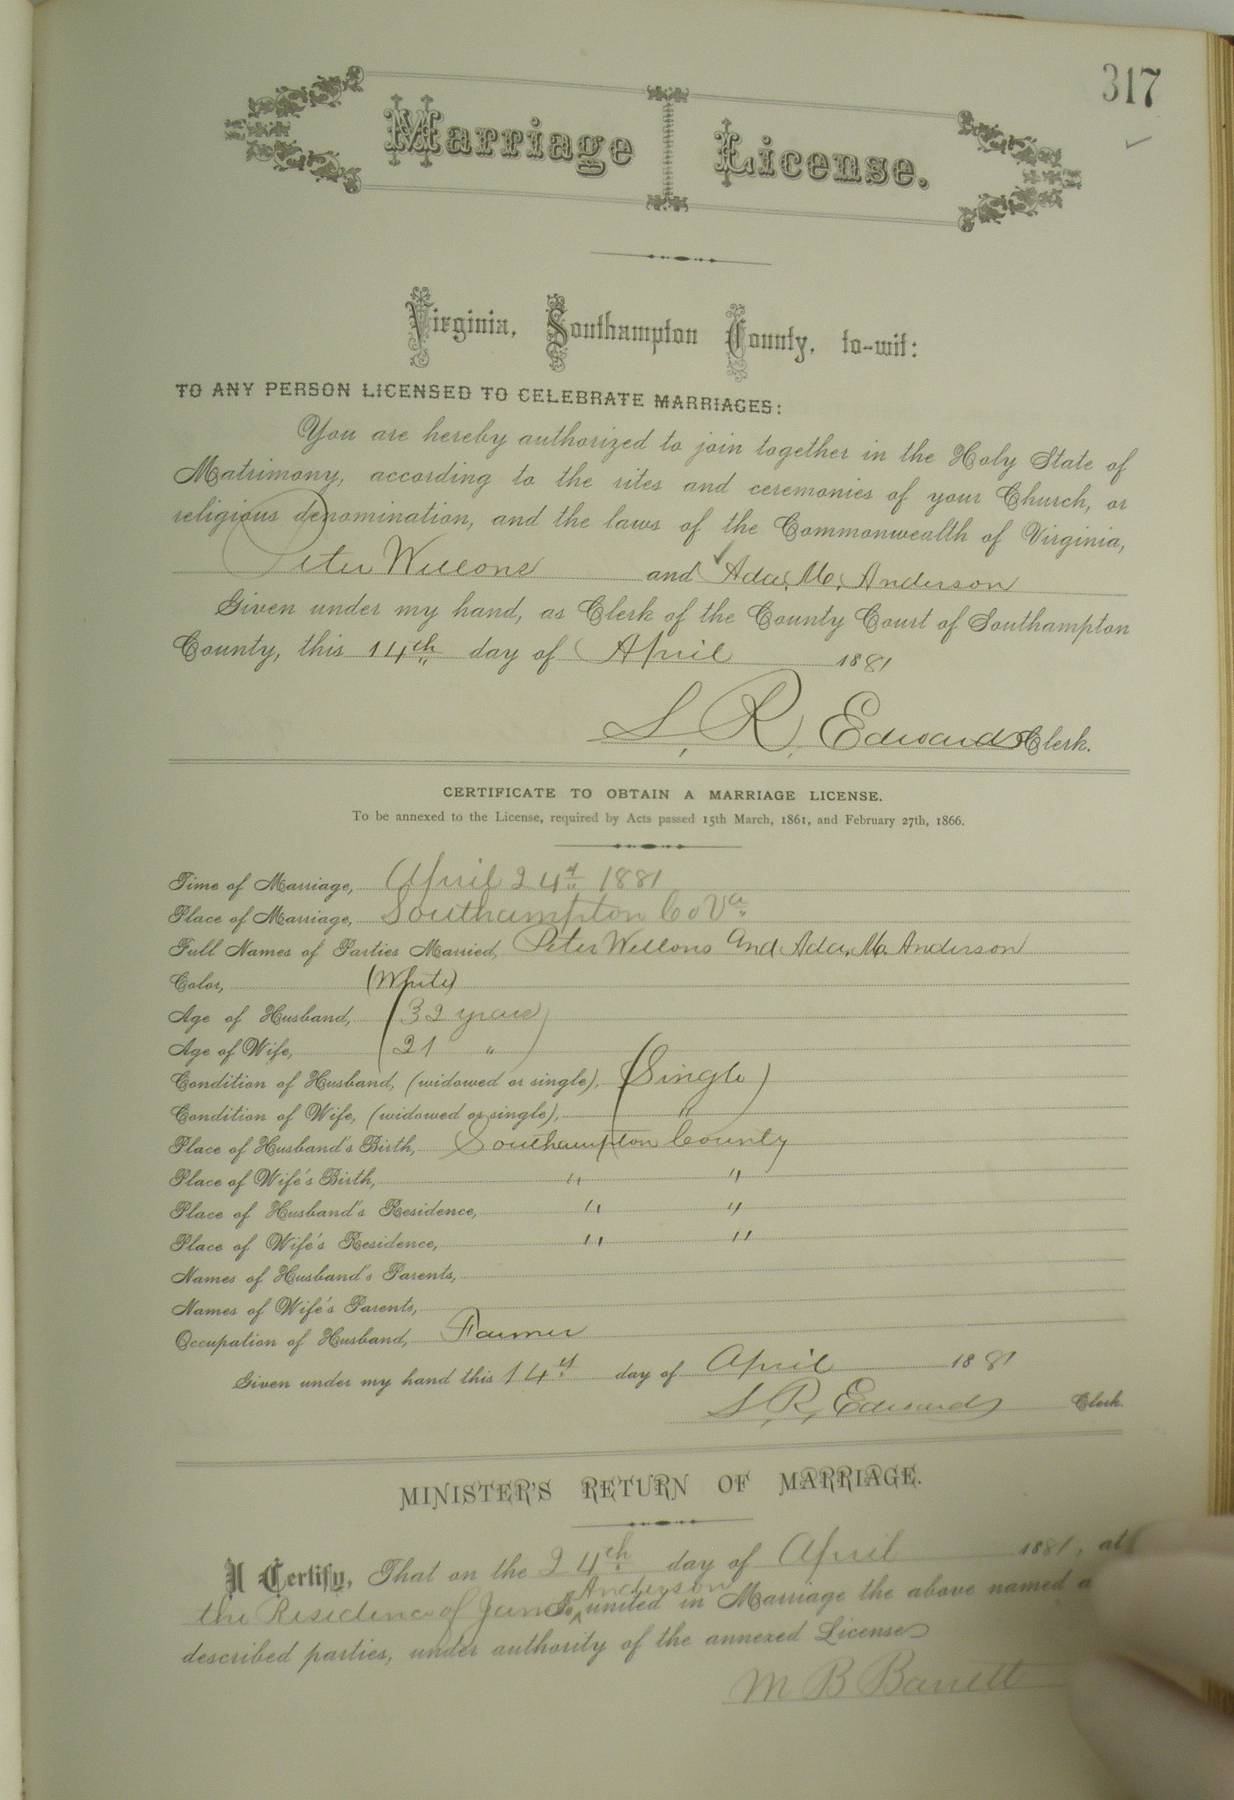 317
Marriage License.
Virginia, Southampton County, to-wit:
TO ANY PERSON LICENSED TO CELEBRATE MARRIAGES:
You are hereby authorized to join together in the Holy State of
Matrimony, according to the rites and ceremonies of your Church, or
religious denomination, and the laws of the Commonwealth of Virginia,
Peter Wellons and Ada, M, Anderson
Given under my hand, as Clerk of the County Court of Southampton
County, this 14th day of April 1881
L, R, Edwards Clerk.
CERTIFICATE TO OBTAIN A MARRIAGE LICENSE.
To be annexed to the License, required by Acts passed 15th March, 1861, and February 27th, 1866.
Time of Marriage, April 24th 1881
Place of Marriage, Southampton Co Va
Full Names of Parties Married, Peter Wellons and Ada, M. Anderson
Color, (White)
Age of Husband, (32 years)
Age of Wife, (21 " )
Condition of Husband, (widowed or single), (Single)
Condition of Wife, (widowed or single), ( " )
Place of Husband's Birth, Southampton County
Place of Wife's Birth, " "
Place of Husband's Residence, " "
Place of Wife's Residence, " "
Names of Husband's Parents,
Names of Wife's Parents,
Occupation of Husband, Farmer
Given under my hand this 14th day of April 1881
L, R, Edwards Clerk.
MINISTER'S RETURN OF MARRIAGE.
I Certify, That on the 24th day of April 1881, at
Anderson
the Residence of I united in Marriage the above named
described parties, under authority of the annexed License
M B Barrett